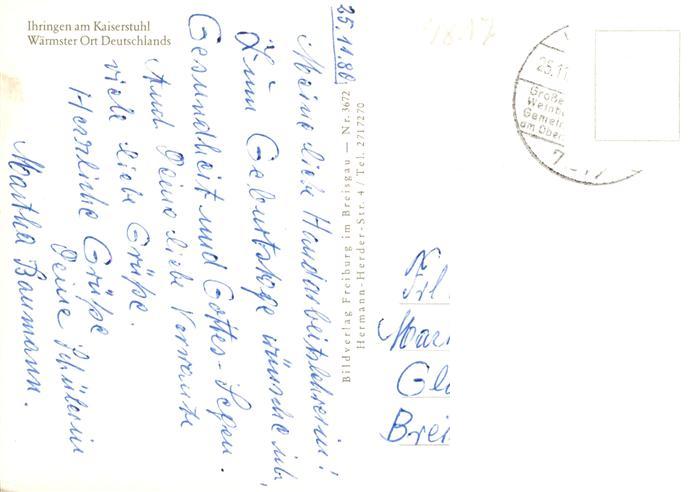 Ihringen am Kaiserstuhl
Wärmster Ort Deutschlands
25.11.86
Meine liebe Handarbeitslehrerin!
Zum Geburtstage wünsche ich
Gesundheit und Gottes-Segen.
Auch Deine liebe Verwandte
viele liebe Grüße.
Herrliche Grüße
Deine Schülerin
Martha Baumann.
Bildverlag Freiburg im Breisgau — Nr. 3672
Hermann-Herder-Str. 4 / Tel. 2717270
25.11
Große
Weinb
Gemein
am Ober
7
Frl.
Mari
Gl
Brei